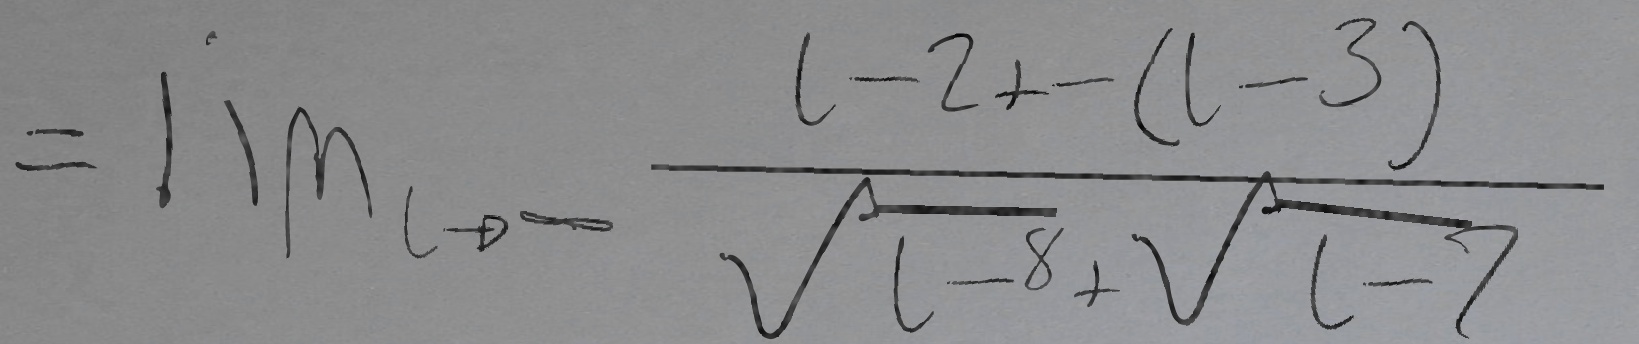 = lim_{l→-} \frac{l-2+-(l-3)}{\sqrt{l-8}+\sqrt{l-7}}